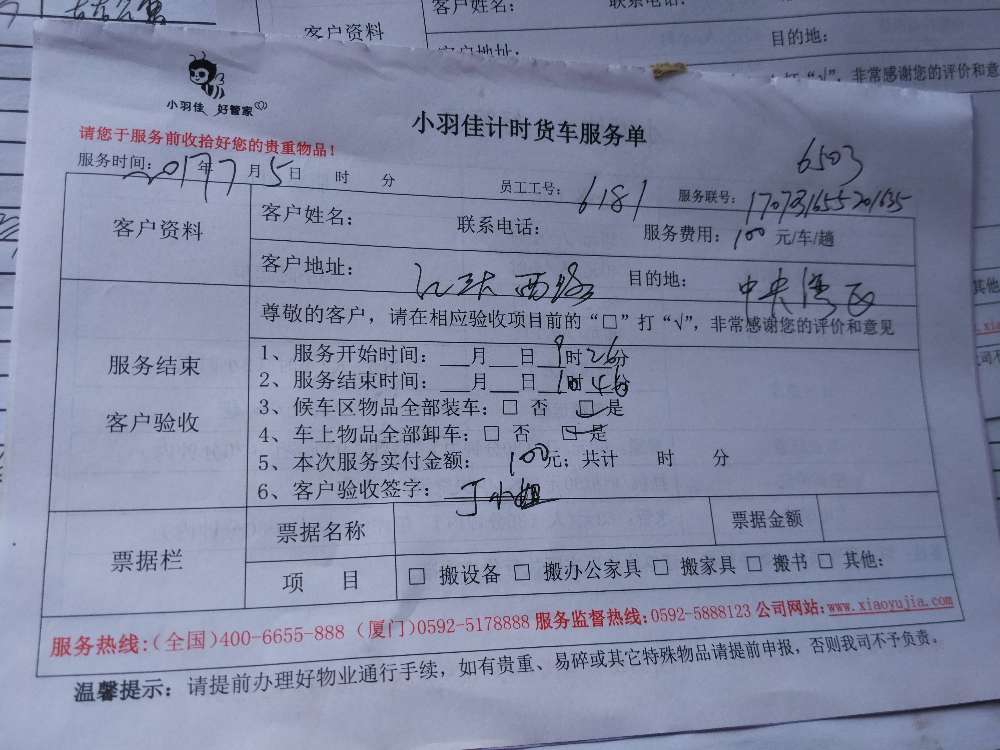 客户姓名：
联系电话：
客户资料
目的地：
客户地址：
打“√”，非常感谢您的评价和意
小羽佳 好管家
小羽佳计时货车服务单
请您于服务前收拾好您的贵重物品！
6503
服务时间：2017年7月5日 时 分 员工工号：6181 服务联号：
客户资料 客户姓名： 联系电话： 服务费用：100元/车/趟
客户地址： 西路 目的地：中央湾区
尊敬的客户，请在相应验收项目前的“□”打“√”，非常感谢您的评价和意见
服务结束
客户验收
1、服务开始时间：__月__日9时26分
2、服务结束时间：__月__日10时46分
3、候车区物品全部装车：□ 否 ☑ 是
4、车上物品全部卸车：□ 否 ☑ 是
5、本次服务实付金额：100元；共计 时 分
6、客户验收签字：丁小姐
票据栏 票据名称 票据金额
项 目 □ 搬设备 □ 搬办公家具 □ 搬家具 □ 搬书 □ 其他：
服务热线：(全国)400-6655-888 (厦门)0592-5178888 服务监督热线：0592-5888123 公司网站：www.xiaoyujia.com
温馨提示：请提前办理好物业通行手续，如有贵重、易碎或其它特殊物品请提前申报，否则我司不予负责。